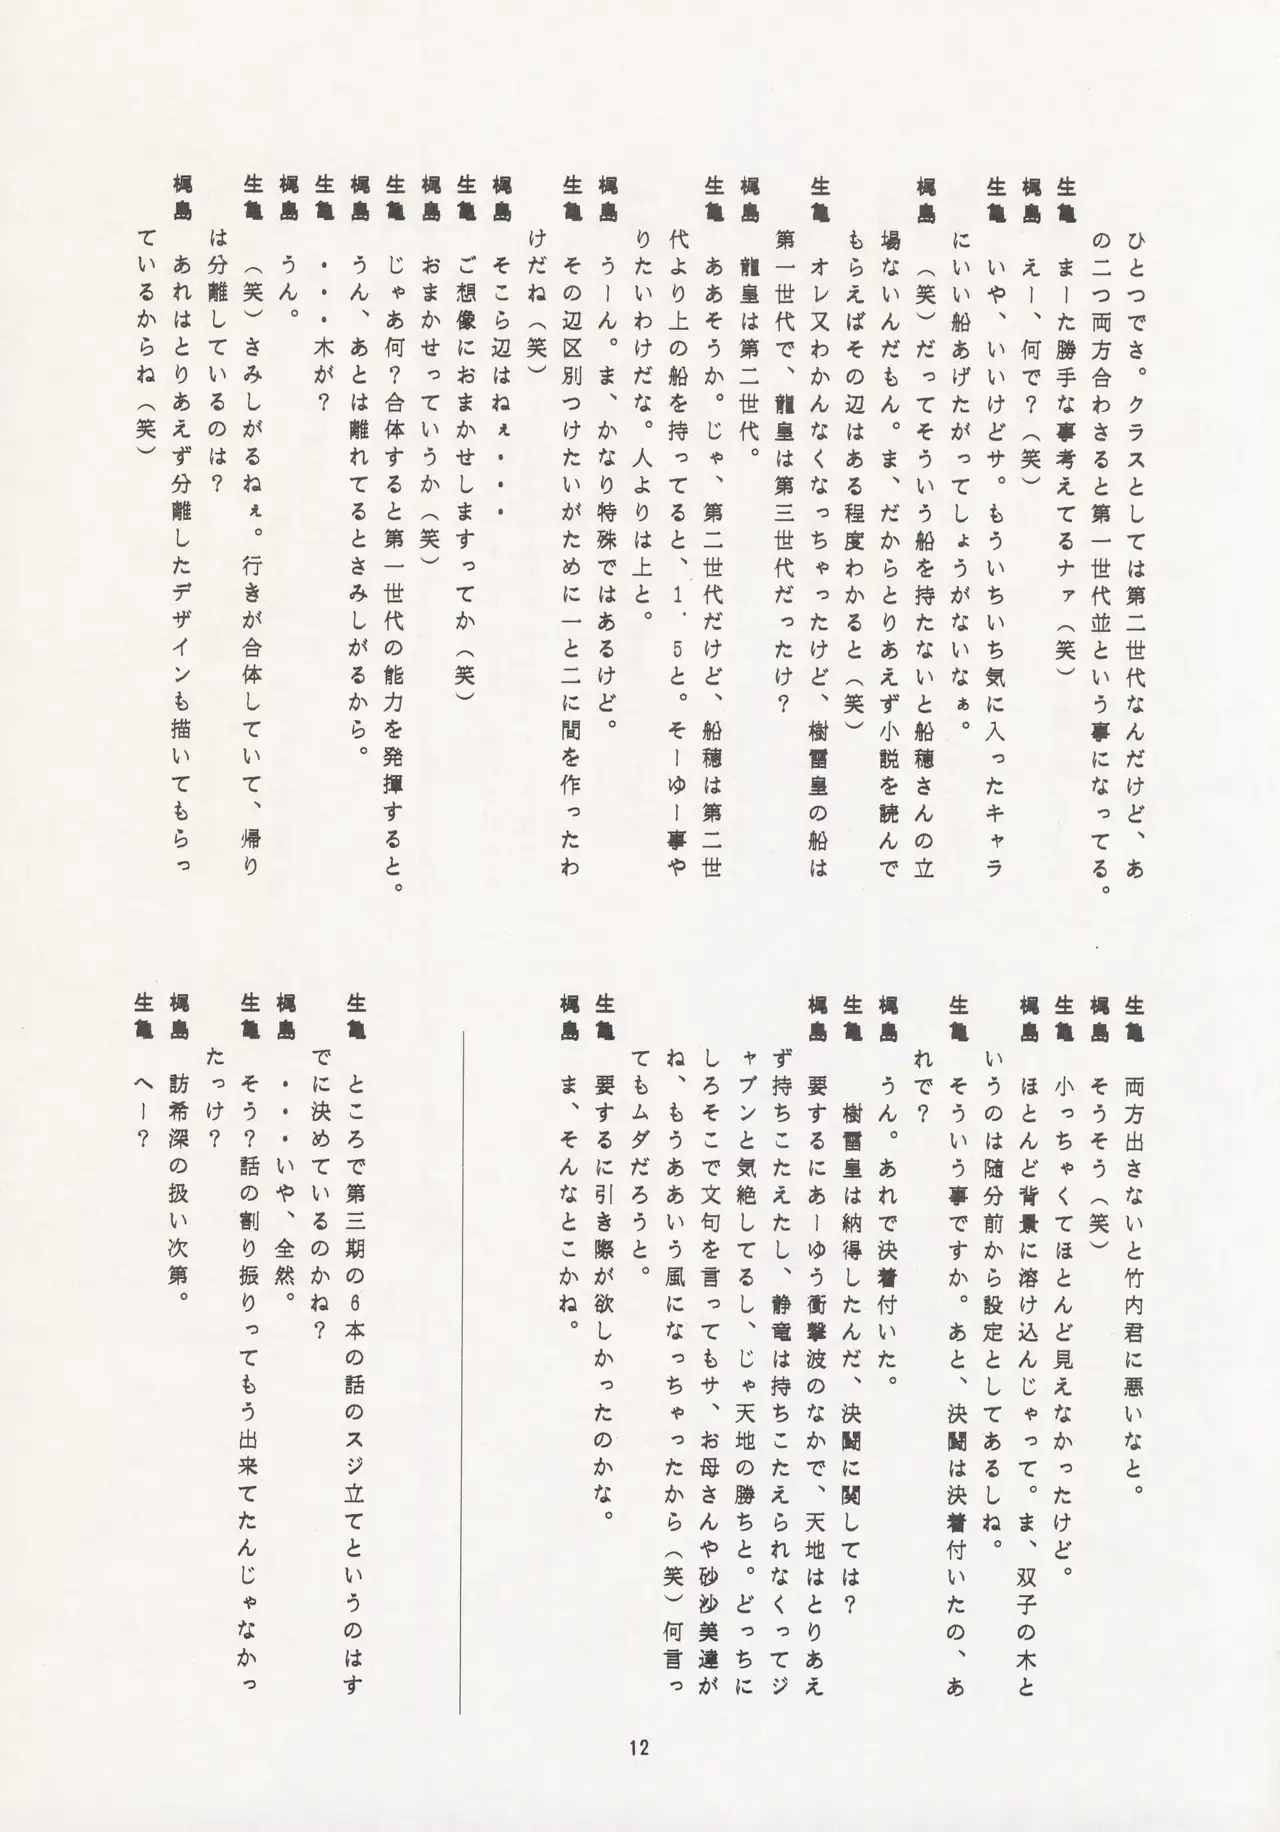 ひとつでさ。クラスとしては第二世代なんだけど、あ
の二つ両方合わさると第一世代並という事になってる。
生亀　まーた勝手な事考えてるナァ（笑）
梶島　えー、何で？（笑）
生亀　いや、いいけどサ。もういちいち気に入ったキャラ
にいい船あげたがってしょうがないなぁ。
梶島　（笑）だってそういう船を持たないと船穂さんの立
場ないんだもん。ま、だからとりあえず小説を読んで
もらえばその辺はある程度わかると（笑）
生亀　オレ又わかんなくなっちゃったけど、樹雷皇の船は
第一世代で、龍皇は第三世代だったけ？
梶島　龍皇は第二世代。
生亀　ああそうか。じゃ、第二世代だけど、船穂は第二世
代より上の船を持ってると、1．5と。そーゆー事や
りたいわけだな。人よりは上と。
梶島　うーん。ま、かなり特殊ではあるけど。
生亀　その辺区別つけたいがために一と二に間を作ったわ
けだね（笑）
梶島　そこら辺はねぇ・・・
生亀　ご想像におまかせしますってか（笑）
梶島　おまかせっていうか（笑）
生亀　じゃあ何？合体すると第一世代の能力を発揮すると。
梶島　うん、あとは離れてるとさみしがるから。
生亀　・・・木が？
梶島　うん。
生亀　（笑）さみしがるねぇ。行きが合体していて、帰り
は分離しているのは？
梶島　あれはとりあえず分離したデザインも描いてもらっ
ているからね（笑）
生亀　両方出さないと竹内君に悪いなと。
梶島　そうそう（笑）
生亀　小っちゃくてほとんど見えなかったけど。
梶島　ほとんど背景に溶け込んじゃって。ま、双子の木と
いうのは随分前から設定としてあるしね。
生亀　そういう事ですか。あと、決闘は決着付いたの、あ
れで？
梶島　うん。あれで決着付いた。
生亀　樹雷皇は納得したんだ、決闘に関しては？
梶島　要するにあーゆう衝撃波のなかで、天地はとりあえ
ず持ちこたえたし、静竜は持ちこたえられなくってジ
ャブンと気絶してるし、じゃ天地の勝ちと。どっちに
しろそこで文句を言ってもサ、お母さんや砂沙美達が
ね、もうああいう風になっちゃったから（笑）何言っ
てもムダだろうと。
生亀　要するに引き際が欲しかったのかな。
梶島　ま、そんなとこかね。
生亀　ところで第三期の6本の話のスジ立てというのはす
でに決めているのかね？
梶島　・・・いや、全然。
生亀　そう？話の割り振りってもう出来てたんじゃなかっ
たっけ？
梶島　訪希深の扱い次第。
生亀　へー？
12